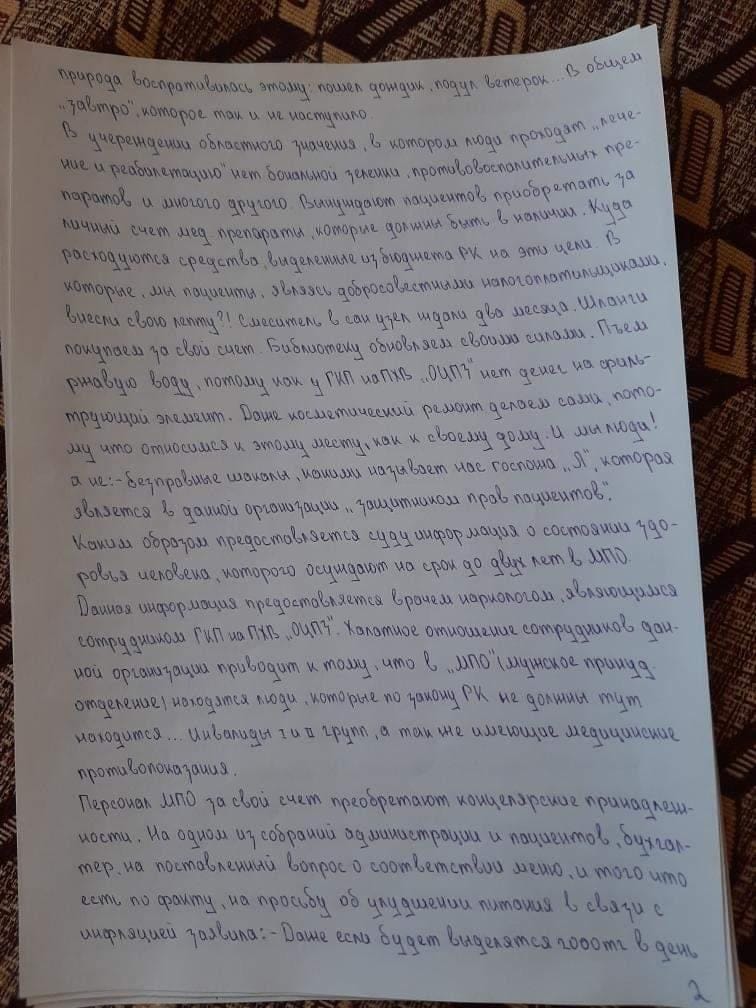 природа воспративилась этому: пошел дождик, подул ветерок... В общем
„завтро", которое так и не наступило.
В учереждении областного значения, в котором люди проходят „лече-
ние и реабилетацию" нет бональной зеленки, противовоспалительных пре-
паратов и многого другого. Вынуждают пациентов приобретать за
личный счет мед. препараты, которые должны быть в наличии. Куда
расходуются средства, выделенные из бюджета РК на эти цели. В
которые, мы пациенты, являясь добросовестными налогоплательщиками,
внесли свою лепту?! Смеситель в сан узел ждали два месяца. Шланги
покупаем за свой счет. Библиотеку обновляем своими силами. Пъем
ржавую воду, потому как у ГКП на ПХВ „ОЦПЗ" нет денег на филь-
трующий элемент. Даже косметический ремонт делаем сами, пото-
му что относимся к этому месту, как к своему дому. И мы люди!
а не:- безправные шакалы, какими называет нас госпожа „Я", которая
является в данной организации „защитником прав пациентов".
Каким образом предоставляется суду информация о состоянии здо-
ровья человека, которого осуждают на срок до двух лет в МПО.
Данная информация предоставляется врачем наркологом, являющимся
сотрудником ГКП на ПХВ „ОЦПЗ". Халатное отношение сотрудников дан-
ной организации приводит к тому, что в „МПО" (мужское принуд.
отделение) находятся люди, которые по закону РК не должны тут
находится... Инвалиды I и II групп, а так же имеющие медицинские
противопоказания.
Персонал МПО за свой счет преобретают концелярские принадлеж-
ности. На одном из собраний администрации и пациентов, бухгал-
тер, на поставленный вопрос о соответствии меню, и того что
есть по факту, на просьбу об улудшении питания в связи с
инфляцией заявила:- Даже если будет выделятся 2000тг в день
2